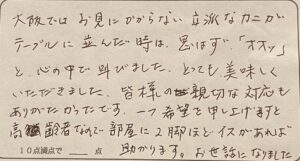 大阪ではお見にかからない立派なカニが
テーブルに並んだ時は、思はず、「オオッ」
と、心の中で叫びました。とっても美味しく
いただきました。皆様の親切な対応も
ありがたかったです。一つ希望を申し上げますと
高齢者なので部屋に2脚ほどイスがあれば
助かります。お世話になりました
10点満点で 点